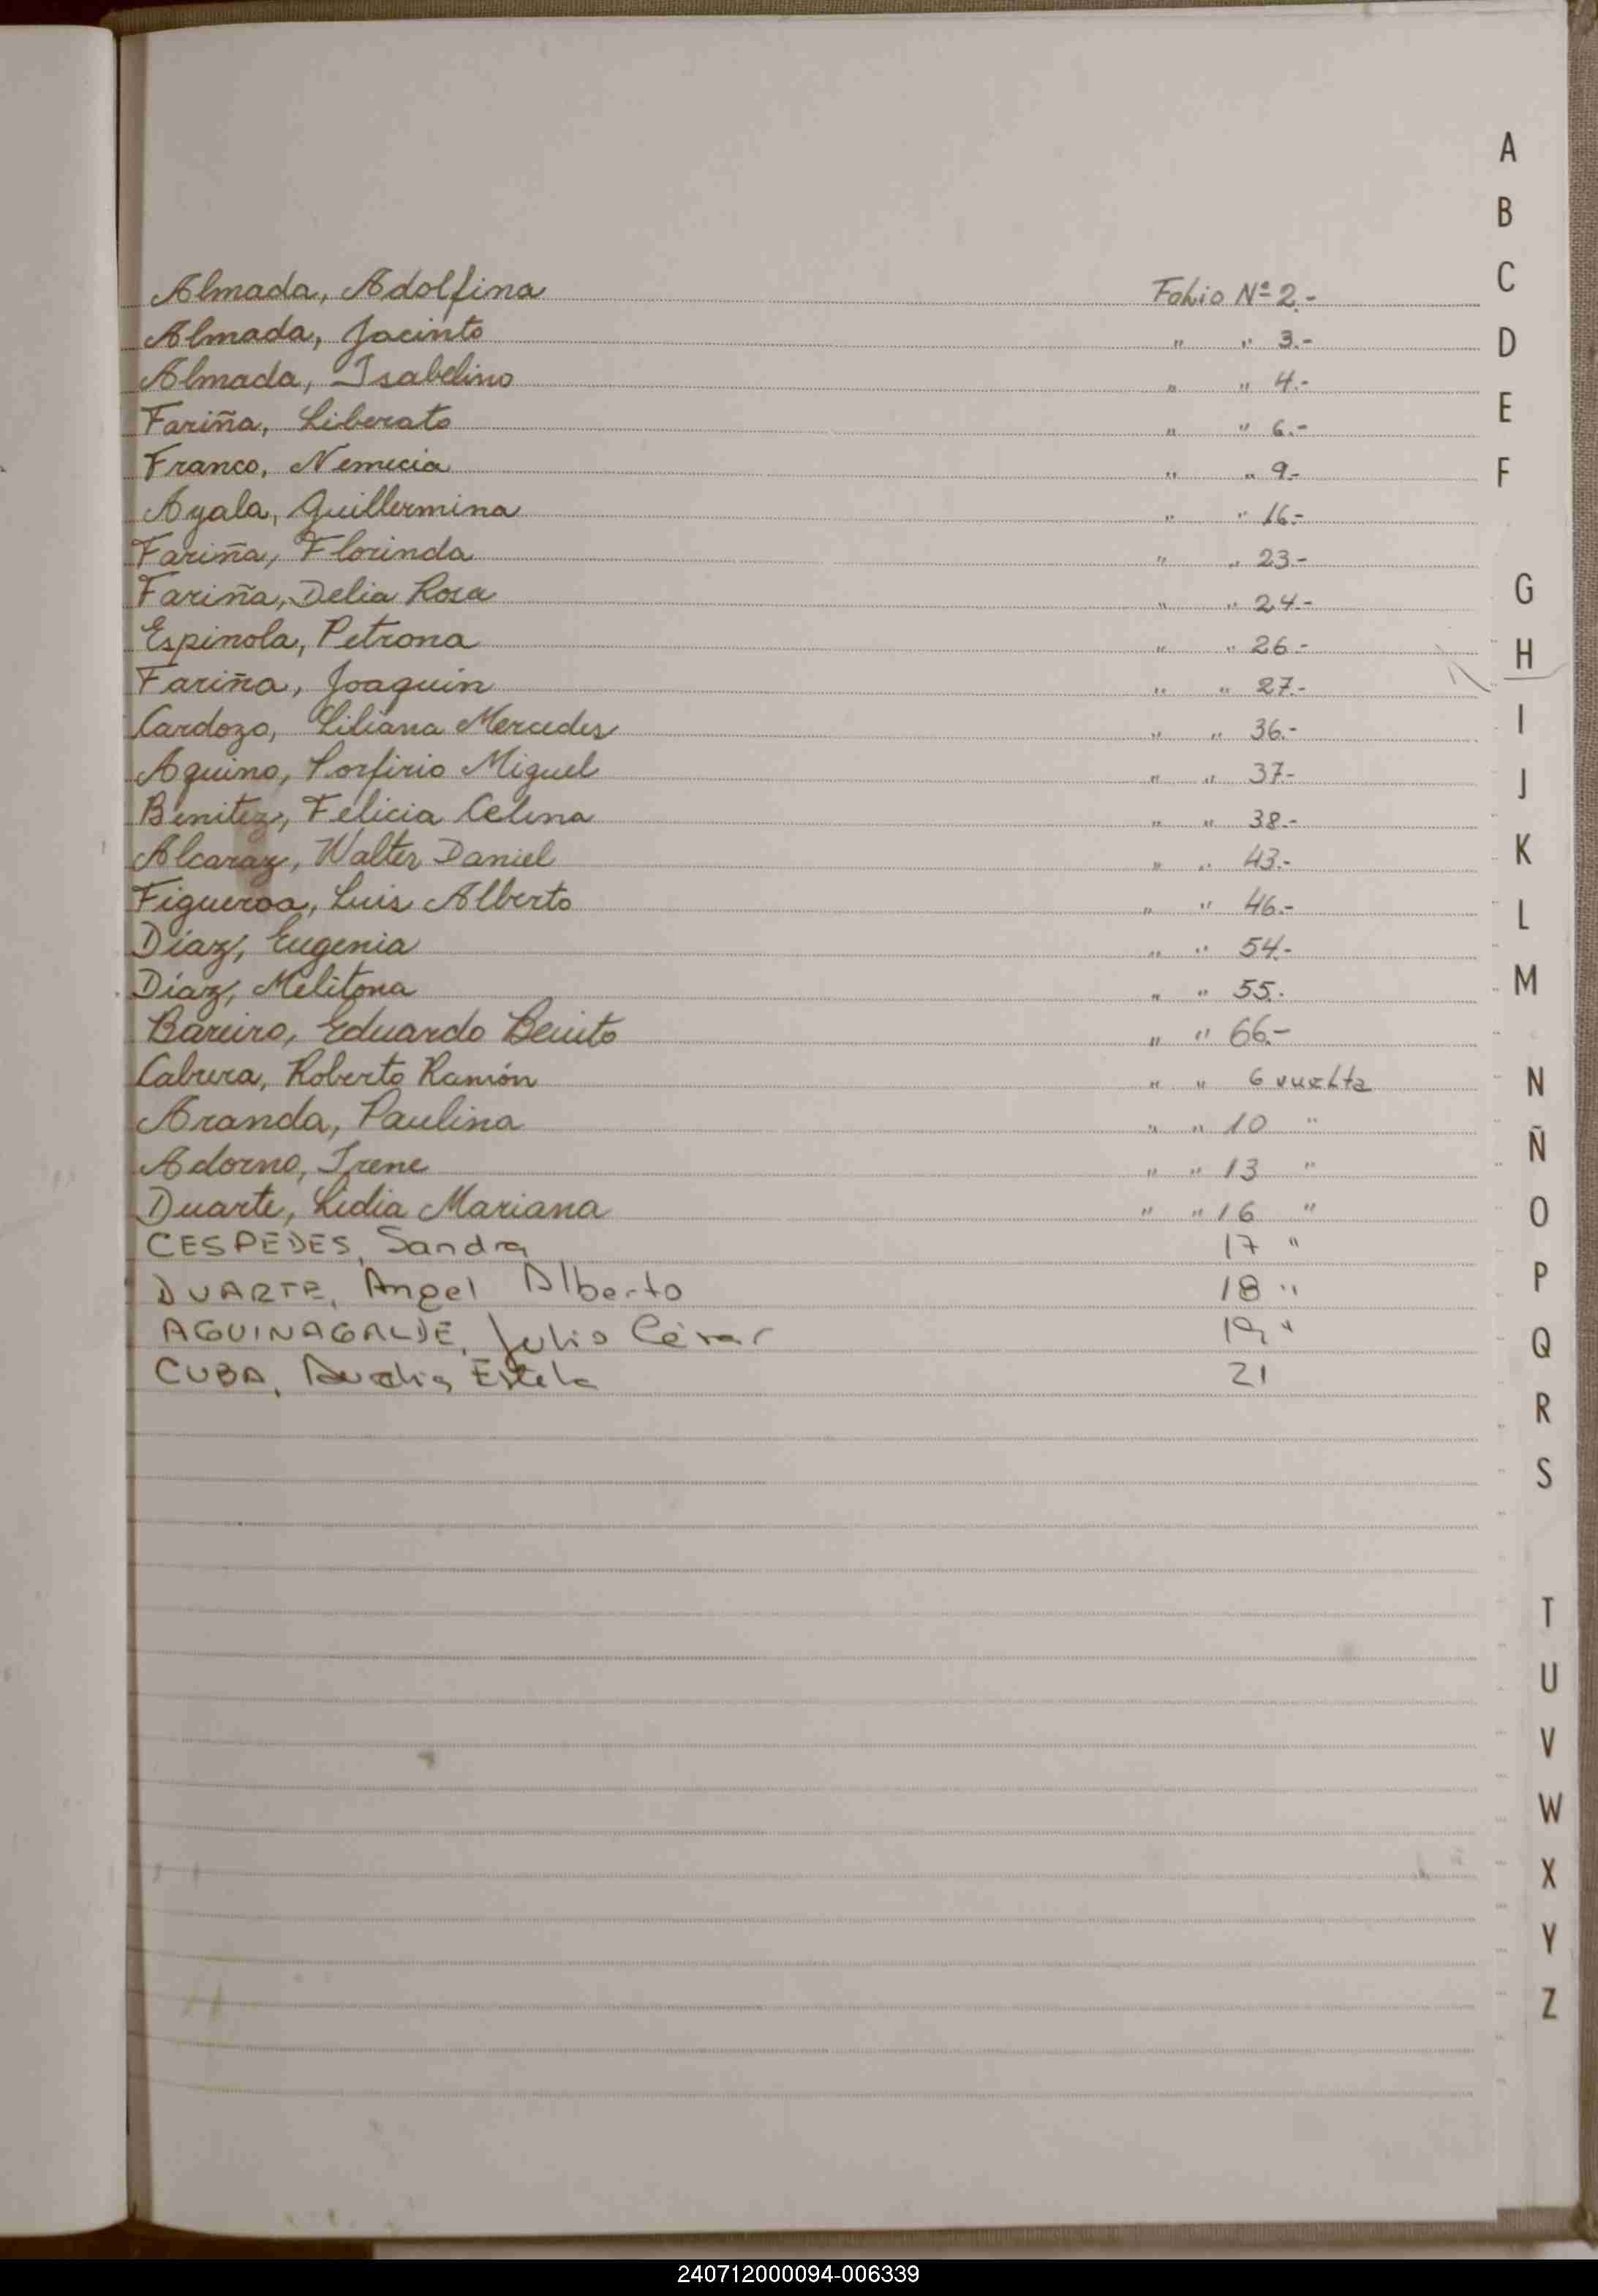 Almada, Adolfina Folio Nº 2.-
Almada, Jacinto " " 3.-
Almada, Isabelino " " 4.-
Fariña, Liberato " " 6.-
Franco, Nemecia " " 9.-
Ayala, Guillermina " " 16.-
Fariña, Florinda " " 23-
Fariña, Delia Rosa " " 24-
Espinola, Petrona " " 26-
Fariña, Joaquin " " 27.-
Cardozo, Liliana Mercedes " " 36.-
Aquino, Porfirio Miguel " " 37-
Benitez, Felicia Celina " " 38.-
Alcaraz, Walter Daniel " " 43.-
Figueroa, Luis Alberto " " 46.-
Diaz, Eugenia " " 54.-
Diaz, Melitona " " 55.
Bareiro, Eduardo Benito " " 66.-
Cabrera, Roberto Ramón " " 6 vuelta
Aranda, Paulina " " 10 "
Adorno, Irene " " 13 "
Duarte, Lidia Mariana " " 16 "
CESPEDES, Sandra 17 "
DUARTE, Angel Alberto 18 "
AGUINAGALDE, Julio César 19 "
CUBA, Estela 21
A
B
C
D
E
F
G
H
I
J
K
L
M
N
Ñ
O
P
Q
R
S
T
U
V
W
X
Y
Z
240712000094-006339